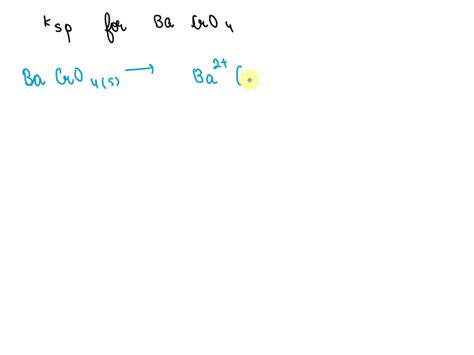 Ksp for Ba CrO4
Ba CrO4(s) → Ba2+ (